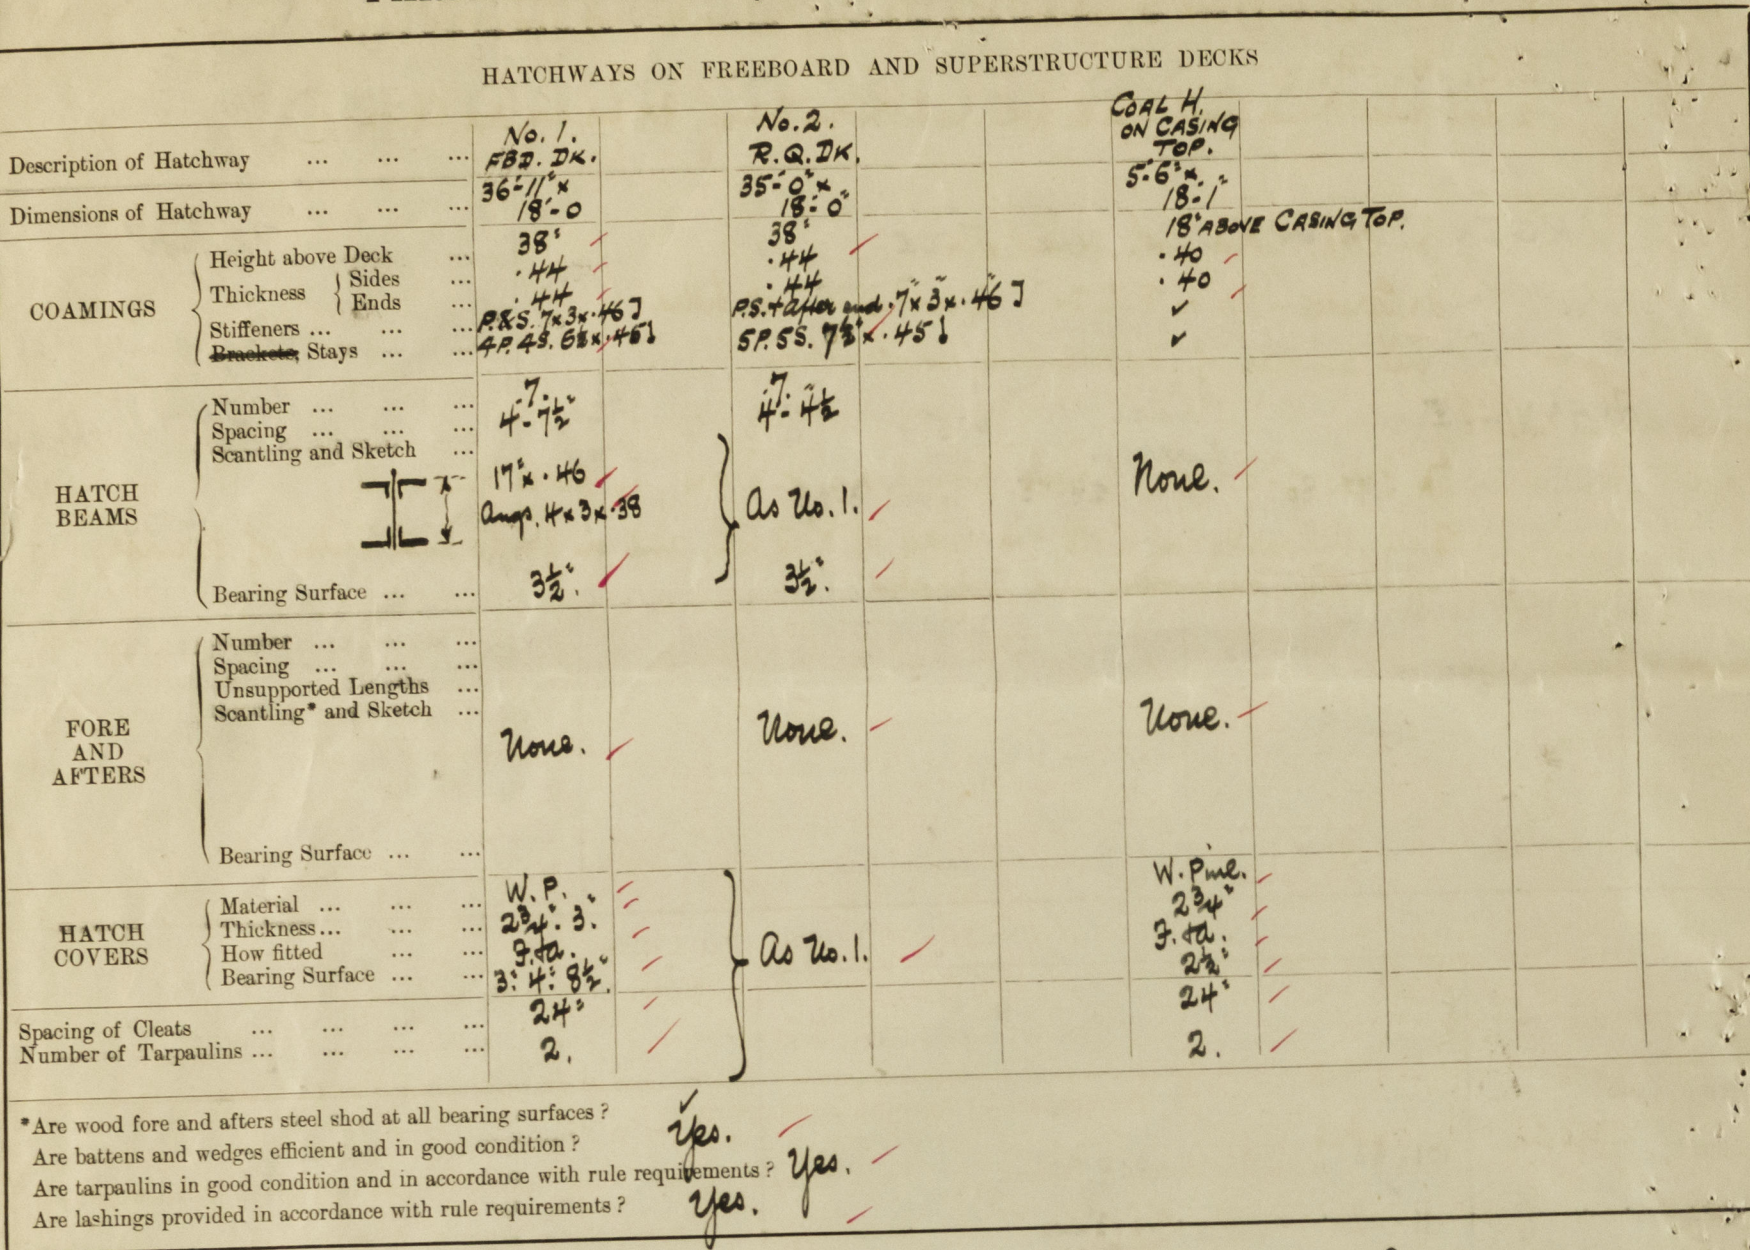 HATCHWAYS ON FREEBOARD AND SUPERSTRUCTURE DECKS
Description of Hatchway ... ... ... No. 1. FBD. DK. No. 2. R.Q.DK. COAL H. ON CASING TOP.
Dimensions of Hatchway ... ... ... 36'-11" x 18'-0 35'-0" x 18'-0" 5'-6" x 18'-1"
COAMINGS
Height above Deck ... 38" 38" 18" ABOVE CASING TOP.
Thickness Sides ... .44 .44 .40
Ends ... .44 .44 .40
Stiffeners ... ... ... P.&S. 7x3x.46] P.S.+ after end .7"x3"x.46] ✓
Brackets, Stays ... ... 4P. 4S. 6½x.45 5P. 5S. 7½"x.45 ✓
HATCH BEAMS
Number ... ... ... 7. 7.
Spacing ... ... ... 4-7½" 4'-4½"
Scantling and Sketch ... 17"x.46 Angs. 4x3x.38 As No. 1. None.
Bearing Surface ... ... 3½". 3½".
FORE AND AFTERS
Number ... ... ...
Spacing ... ... ...
Unsupported Lengths ...
Scantling* and Sketch ... None. None. None.
Bearing Surface ... ...
HATCH COVERS
Material ... ... ... W.P. W. Pine.
Thickness... ... ... 2¾". 3". 2¾"
How fitted ... ... F.+a. As No. 1. F.+a.
Bearing Surface ... ... 3". 4". 8½". 2½"
Spacing of Cleats ... ... ... ... 24" 24"
Number of Tarpaulins ... ... ... ... 2. 2.
*Are wood fore and afters steel shod at all bearing surfaces? ✓
Are battens and wedges efficient and in good condition? Yes.
Are tarpaulins in good condition and in accordance with rule requirements? Yes.
Are lashings provided in accordance with rule requirements? Yes.